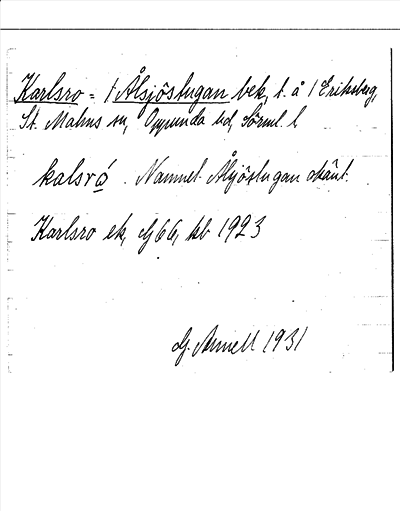 Karlsro = / Ålsjöstugan bek, t. å / Eriksberg,
St. Malms sn, Oppunda hd, Sörml. l.
kalsró. Namnet Ålsjöstugan okänt.
Karlsro ek, dJ 66, kb 1923
G. Arnell 1931